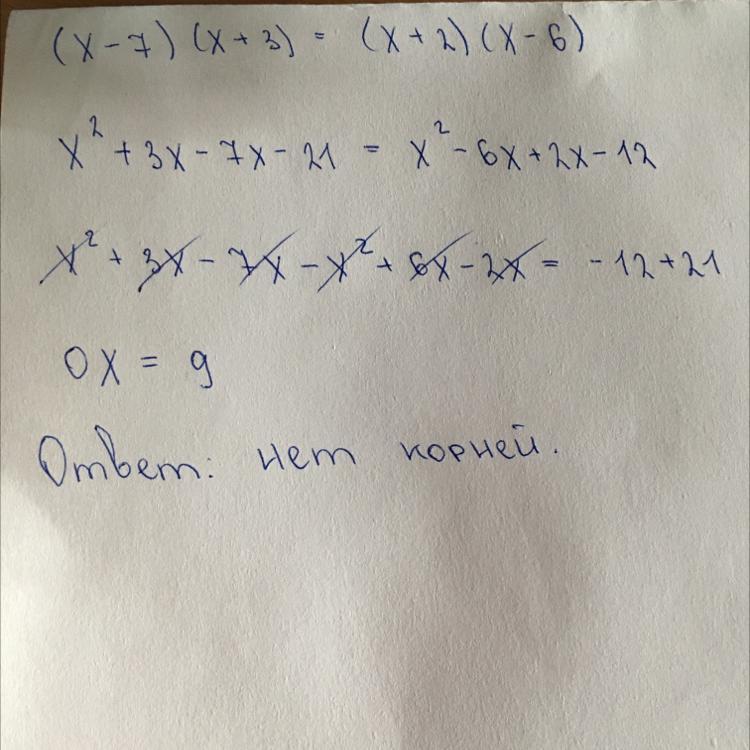 (x-7)(x+3) = (x+2)(x-6)
x²+3x-7x-21 = x²-6x+2x-12
x²+3x-7x-x²+6x-2x = -12+21
0x = 9
Ответ: нет корней.